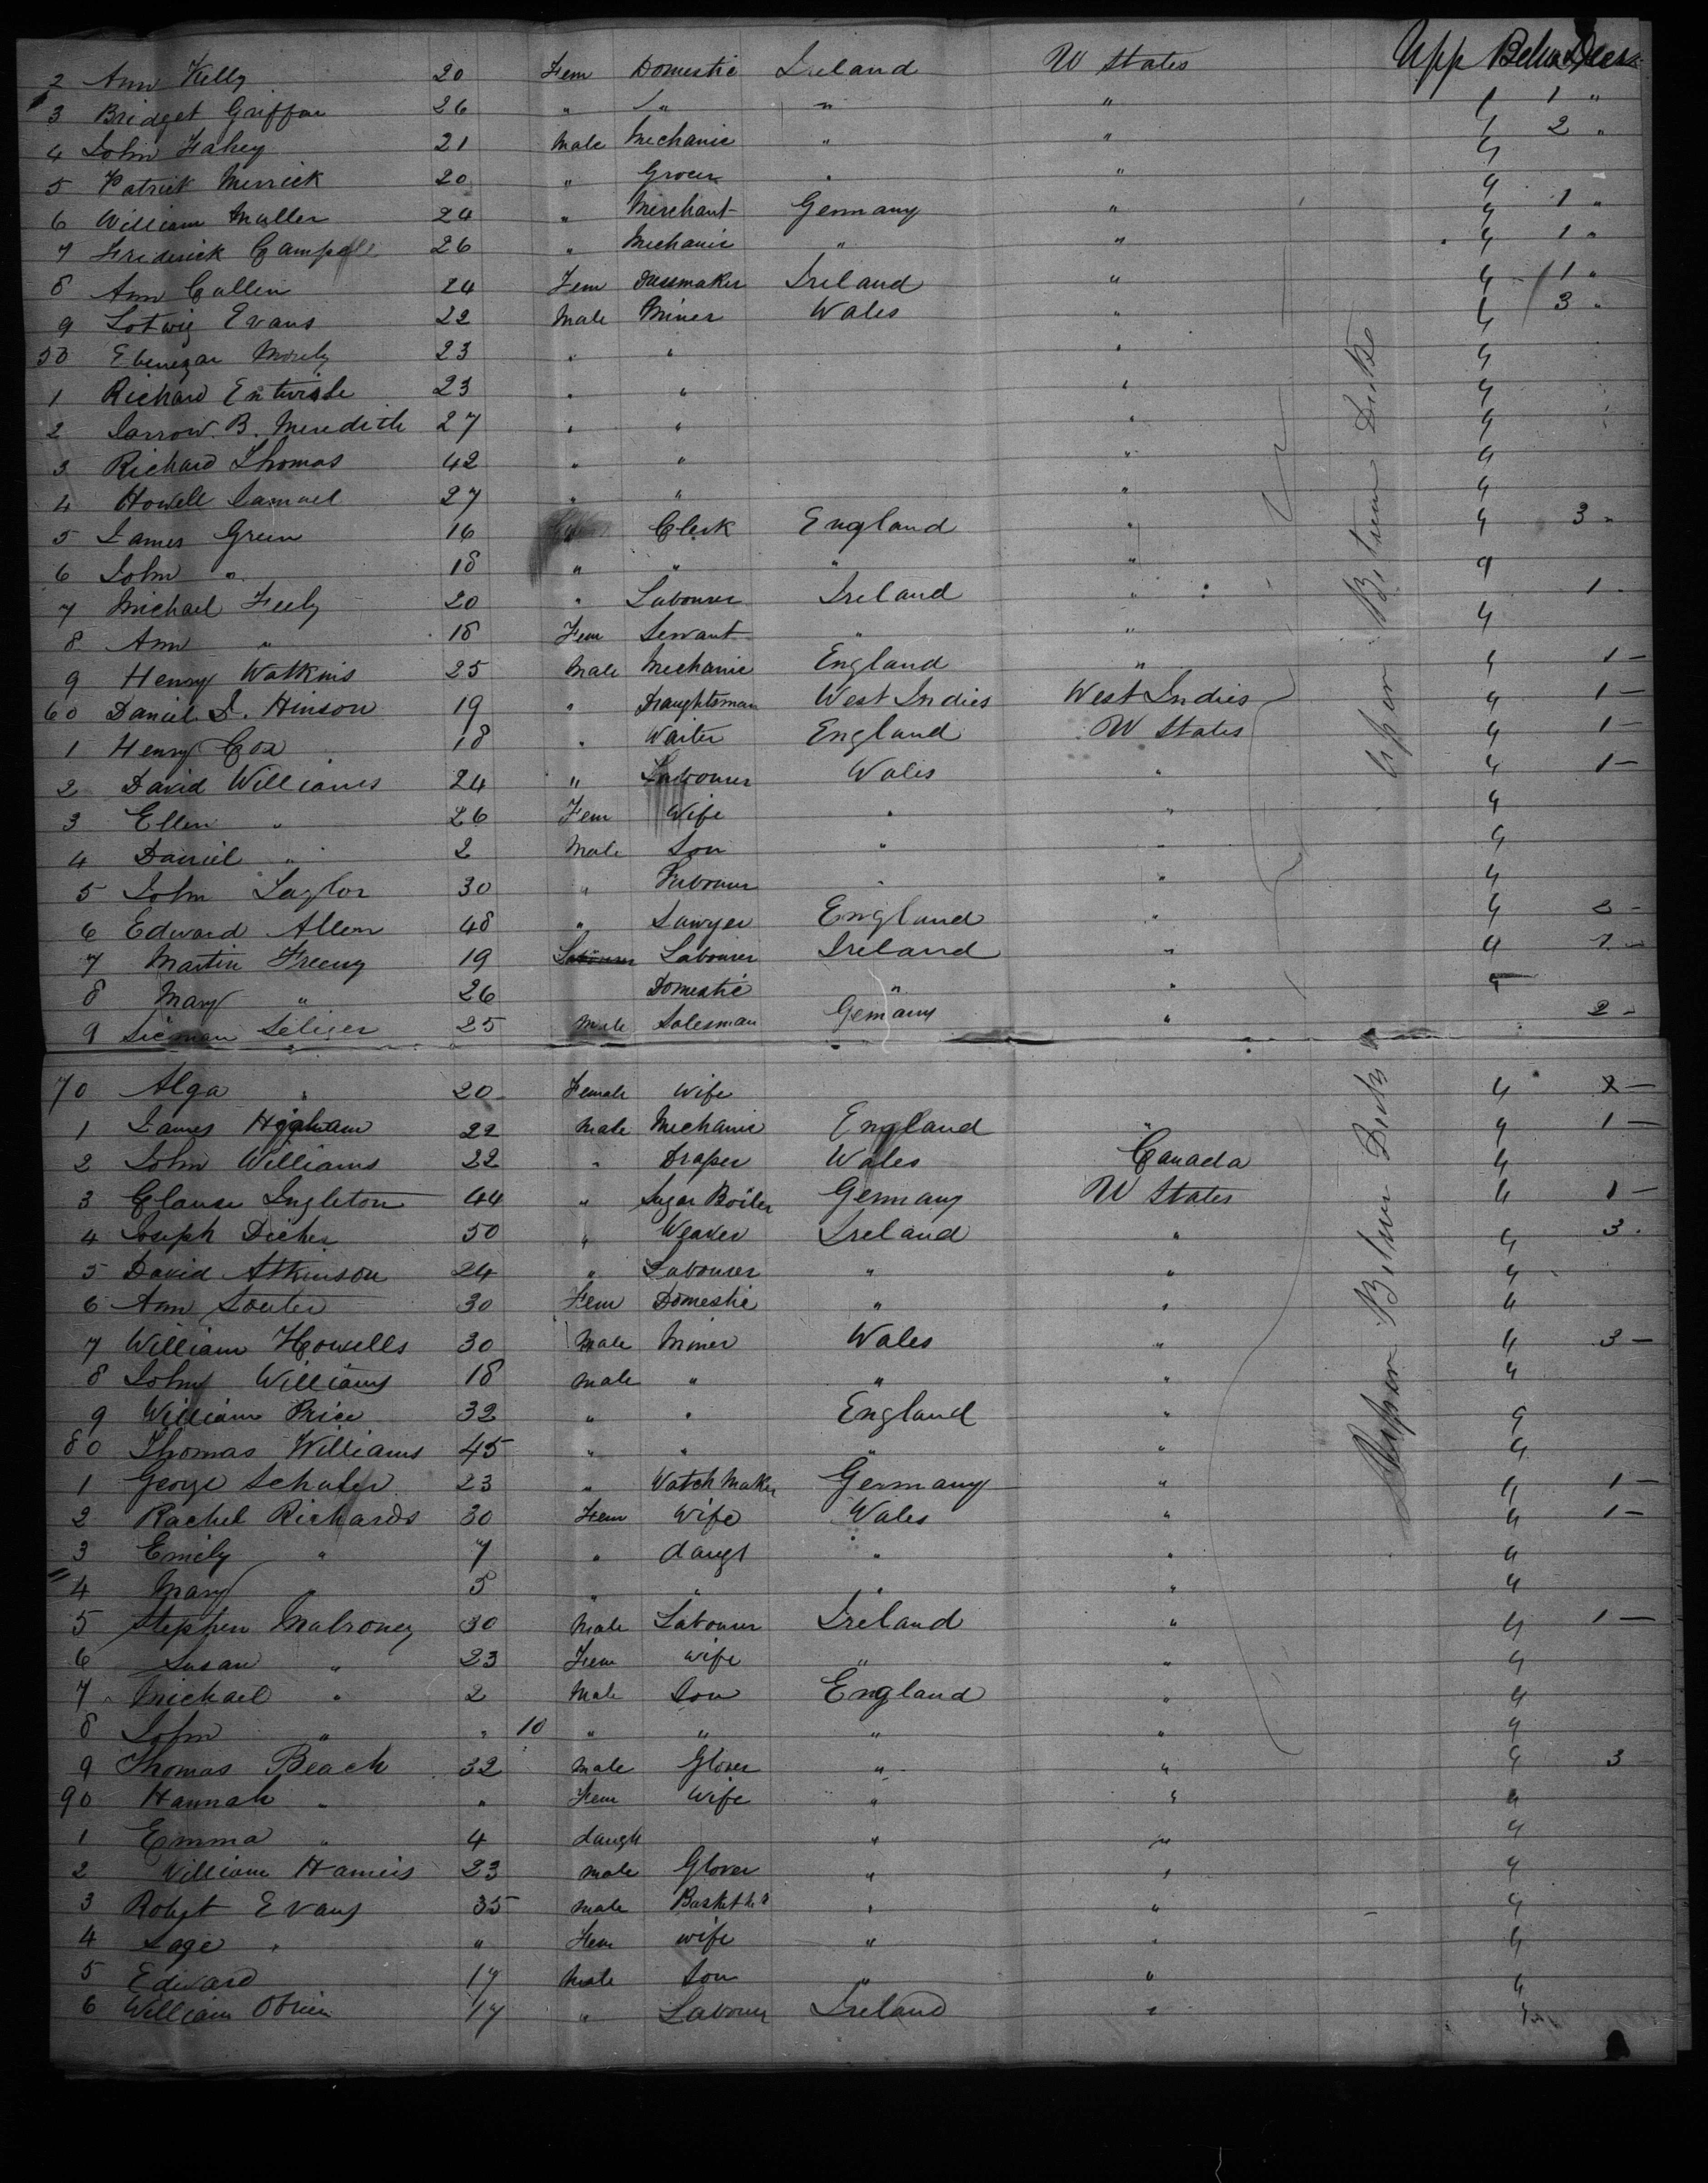 Upp Betw Decks
2 Ann Kelly 20 Fem Domestic Ireland U States
3 Bridget Griffin 26 " " " " 4 1 "
4 John Fahey 21 Male Mechanic " " 4 2 "
5 Patrick Merrick 20 " Grocer " " 4
6 William Muller 24 " Merchant Germany " 4 1 "
7 Friderick Campell 26 " Mechanic " " 4 1 "
8 Ann Cullin 24 Fem Dressmaker Ireland " 4 1 "
9 Lotwig Evans 22 Male Miner Wales " 4 3 "
50 Ebenezar 23 " " " 4
1 Richard Entwisle 23 " " " 4
2 B. Meredith 27 " " " 4
3 Richard Thomas 42 " " " 4
4 Howell Samuel 27 " " " 4
5 James Green 16 Clerk England " 4 3 "
6 John " 18 " " " " 4
7 Michael Feely 20 " Labourer Ireland " 4 1 -
8 Ann " 18 Fem Servant " "
9 Henry Watkins 25 Male Mechanic England " 4 1 -
60 Daniel I. Hinson 19 " Draughtsman West Indies West Indies 4 1 -
1 Henry Cox 18 " Waiter England U States 4 1 -
2 David Williams 24 " Labourer Wales " 4 1 -
3 Ellen " 26 Fem Wife " " 4
4 Daniel " 2 Male Son " " 4
5 John Taylor 30 " Labourer " " 4
6 Edward Allen 48 " Sawyer England " 4 2 -
7 Martin Freeny 19 Labourer Labourer Ireland " 4 1 -
8 Mary " 26 Domestic " " 4
9 Seliger 25 Male Salesman Gemany " 2 -
70 Alga " 20 Female Wife 4
1 James Higham 22 Male Mechanic England " 4 1 -
2 John Williams 22 " Draper Wales Canada 4
3 Clause Ingleton 44 " Sugar Boiler Germany U States 4 1 -
4 Joseph Dicher 50 " Weaver Ireland " 4 3 -
5 David Atkinson 24 " Labourer " " 4
6 Ann Souter 30 Fem Domestic " " 4
7 William Howells 30 Male Miner Wales " 4 3 -
8 John Williams 18 male " " " 4
9 William Price 32 " " England " 4
80 Thomas Williams 45 " " " " 4
1 George Schafer 23 " Watch Maker Germany " 4 1 -
2 Rachel Richards 30 Fem Wife Wales " 4 1 -
3 Emily " 7 " daugt " " 4
4 Mary " 5 " " " " 4
5 Stephen Mulroney 30 Male Labourer Ireland " 4 1 -
6 Susan " 23 Fem wife " " 4
7 Michael " 2 Male Son England " 4
8 John " " 10 " " " " 4
9 Thomas Beach 32 Male Glover " " 4 3
90 Hannah " " Fem Wife " " 4
1 Emma " 4 daugh " " 4
2 William 23 male Glover " " 4
3 Robert Evans 35 male " " 4
4 Sage " " Fem wife " " 4
5 Edward 17 Male Son " " 4
6 William Obrien 17 " Labourer Ireland " 4
Upper Between Decks
Upper Between Decks